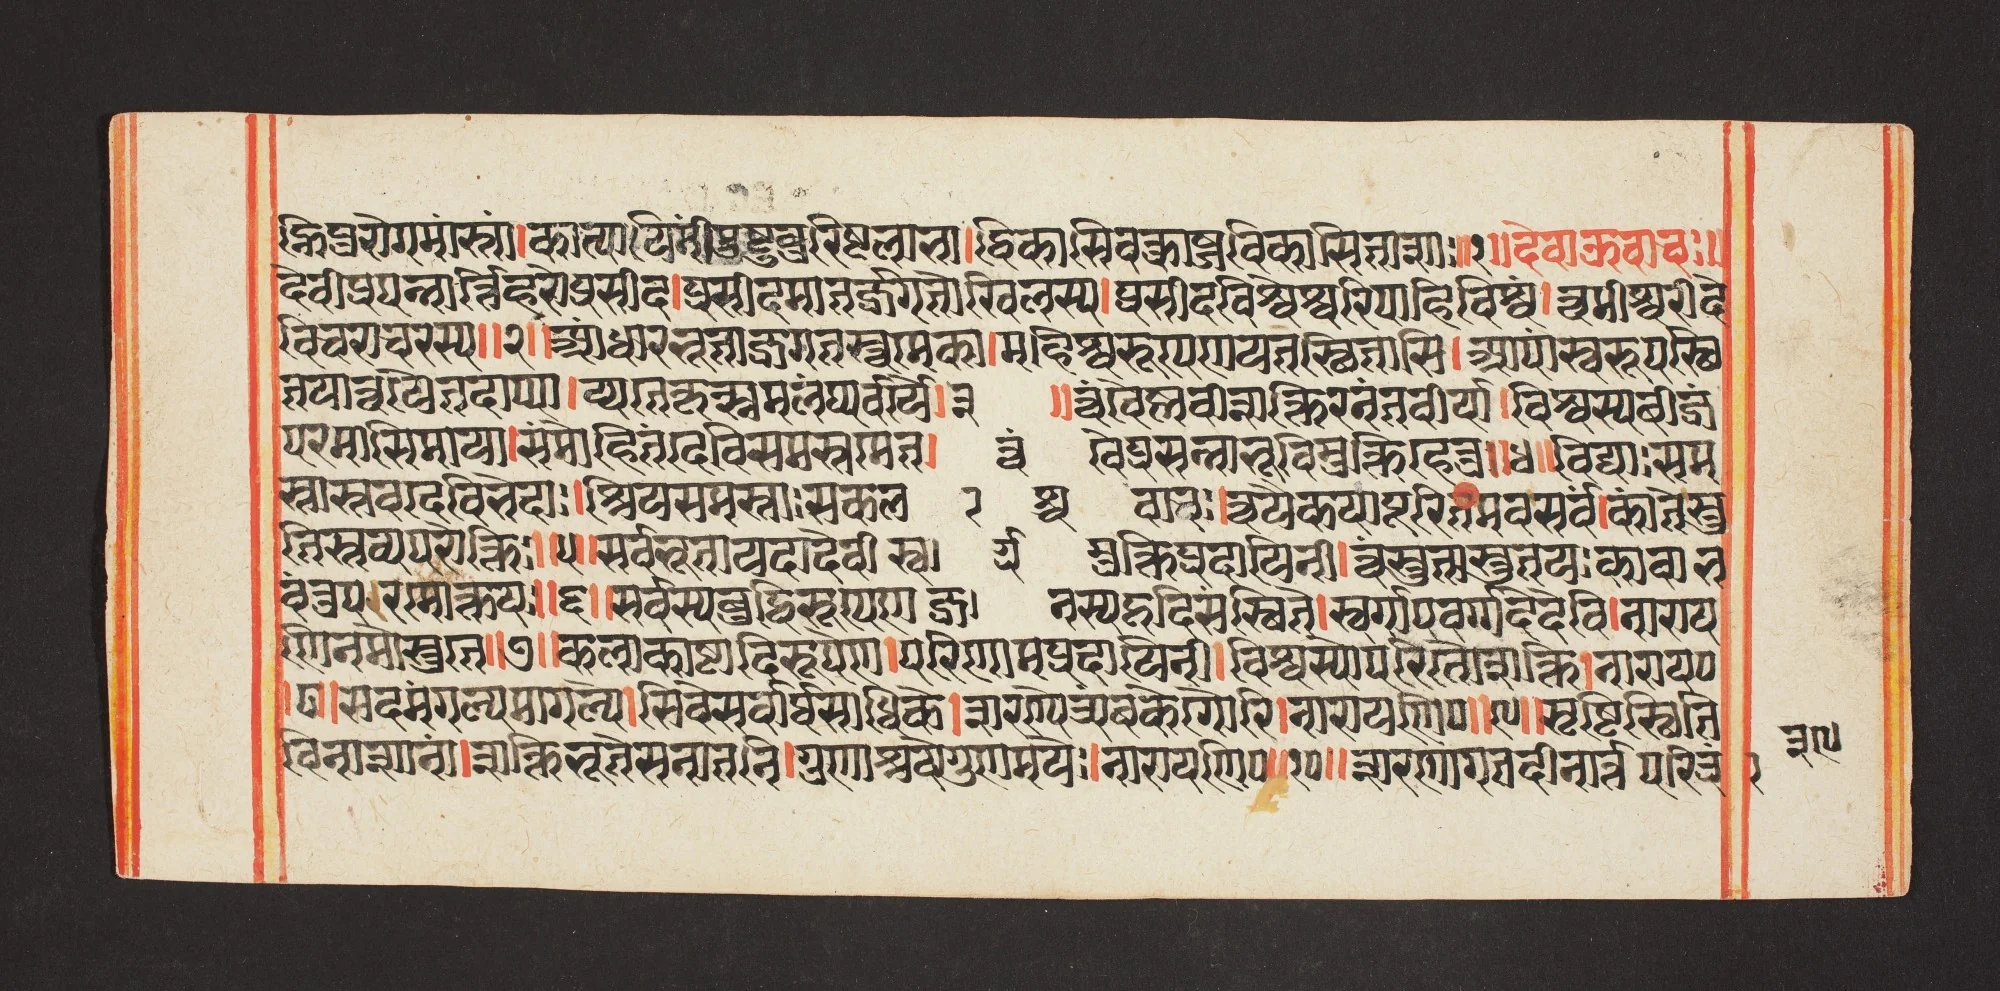 ह्निपुरोगमांस्तां।कात्यायिनींप्रुष्टुवुरिष्टलाभा।द्विकासिवक्राब्जविकासिताशाः॥१॥देवाऊवाचः॥
देवीप्रपन्नार्त्तिहराप्रसीद।प्रसीदमातर्ज्जगतोखिलस्य।प्रसीदविश्वेश्वरिपाहिविश्वं।त्वमीश्वरीदे
विचराचरस्य॥२॥आधारभूताज्जगतस्त्वमेका।महिश्वरूपेणयतस्थितासि।आपांस्वरूपस्थि
तयात्वयैतदाप्या।प्यतेकृत्स्नमलंघ्यवीर्ये।३॥त्वंवैष्णवीशक्तिरनंतवीर्या।विश्वस्यबीजं
परमासिमाया।संमोहितंदेविसमस्तमेत। त्वं वैप्रसन्नाभूविमुक्तिहेतु॥४॥विद्याःसम
स्तास्तवदेविभेदाः।श्रियसमस्ताःसकल २ श्च वाचः।त्वयैकयापूरितमेवसर्वं।कांतेस्तु
तिस्तव्यपरोक्तिः॥५॥सर्वभूतायदादेवी स्व। र्ग मुक्तिप्रदायिनी।त्वंस्तुतास्तुतयेःकावाभ
वंतुपरमोक्तयः॥६॥सर्वस्यबुद्धिरूपेण ज। नस्यहृदिसंस्थिते।स्वर्गापवर्गदेदेवि।नाराय
णिनमोस्तुते॥७॥कलाकाष्टादिरूपेण।परिणामप्रदायिनी।विश्वस्योपरितौशक्ति।नाराय०
॥८॥सर्वमंगल्यमांगल्ये।सिवेसर्वार्थसाधिके।शरण्येत्र्यंबकेगौरि।नारायणि०॥९॥सृष्टिस्थिति
विनाशानां।शक्तिभूतेसनातनि।गुणाश्रयेगुणमये।नारायणि०॥१०॥शरणागतदीनार्त्तपरित्रं
३९